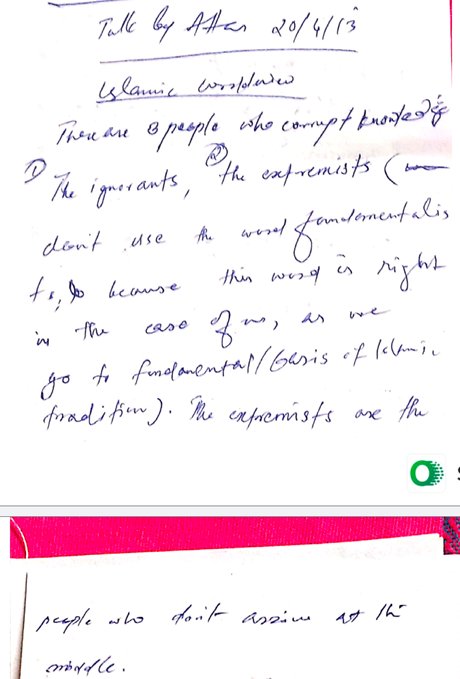 Talk by Attas 20/4/13
Islamic worldview
There are 3 people who corrupt knowledge
① The ignorants, ② the extremists (
don't use the word fundamentalis
ts, because this word is right
in the case of us, as we
go to fundamental/basis of Islamic
tradition). The extremists are the
people who don't arrive at the
middle.